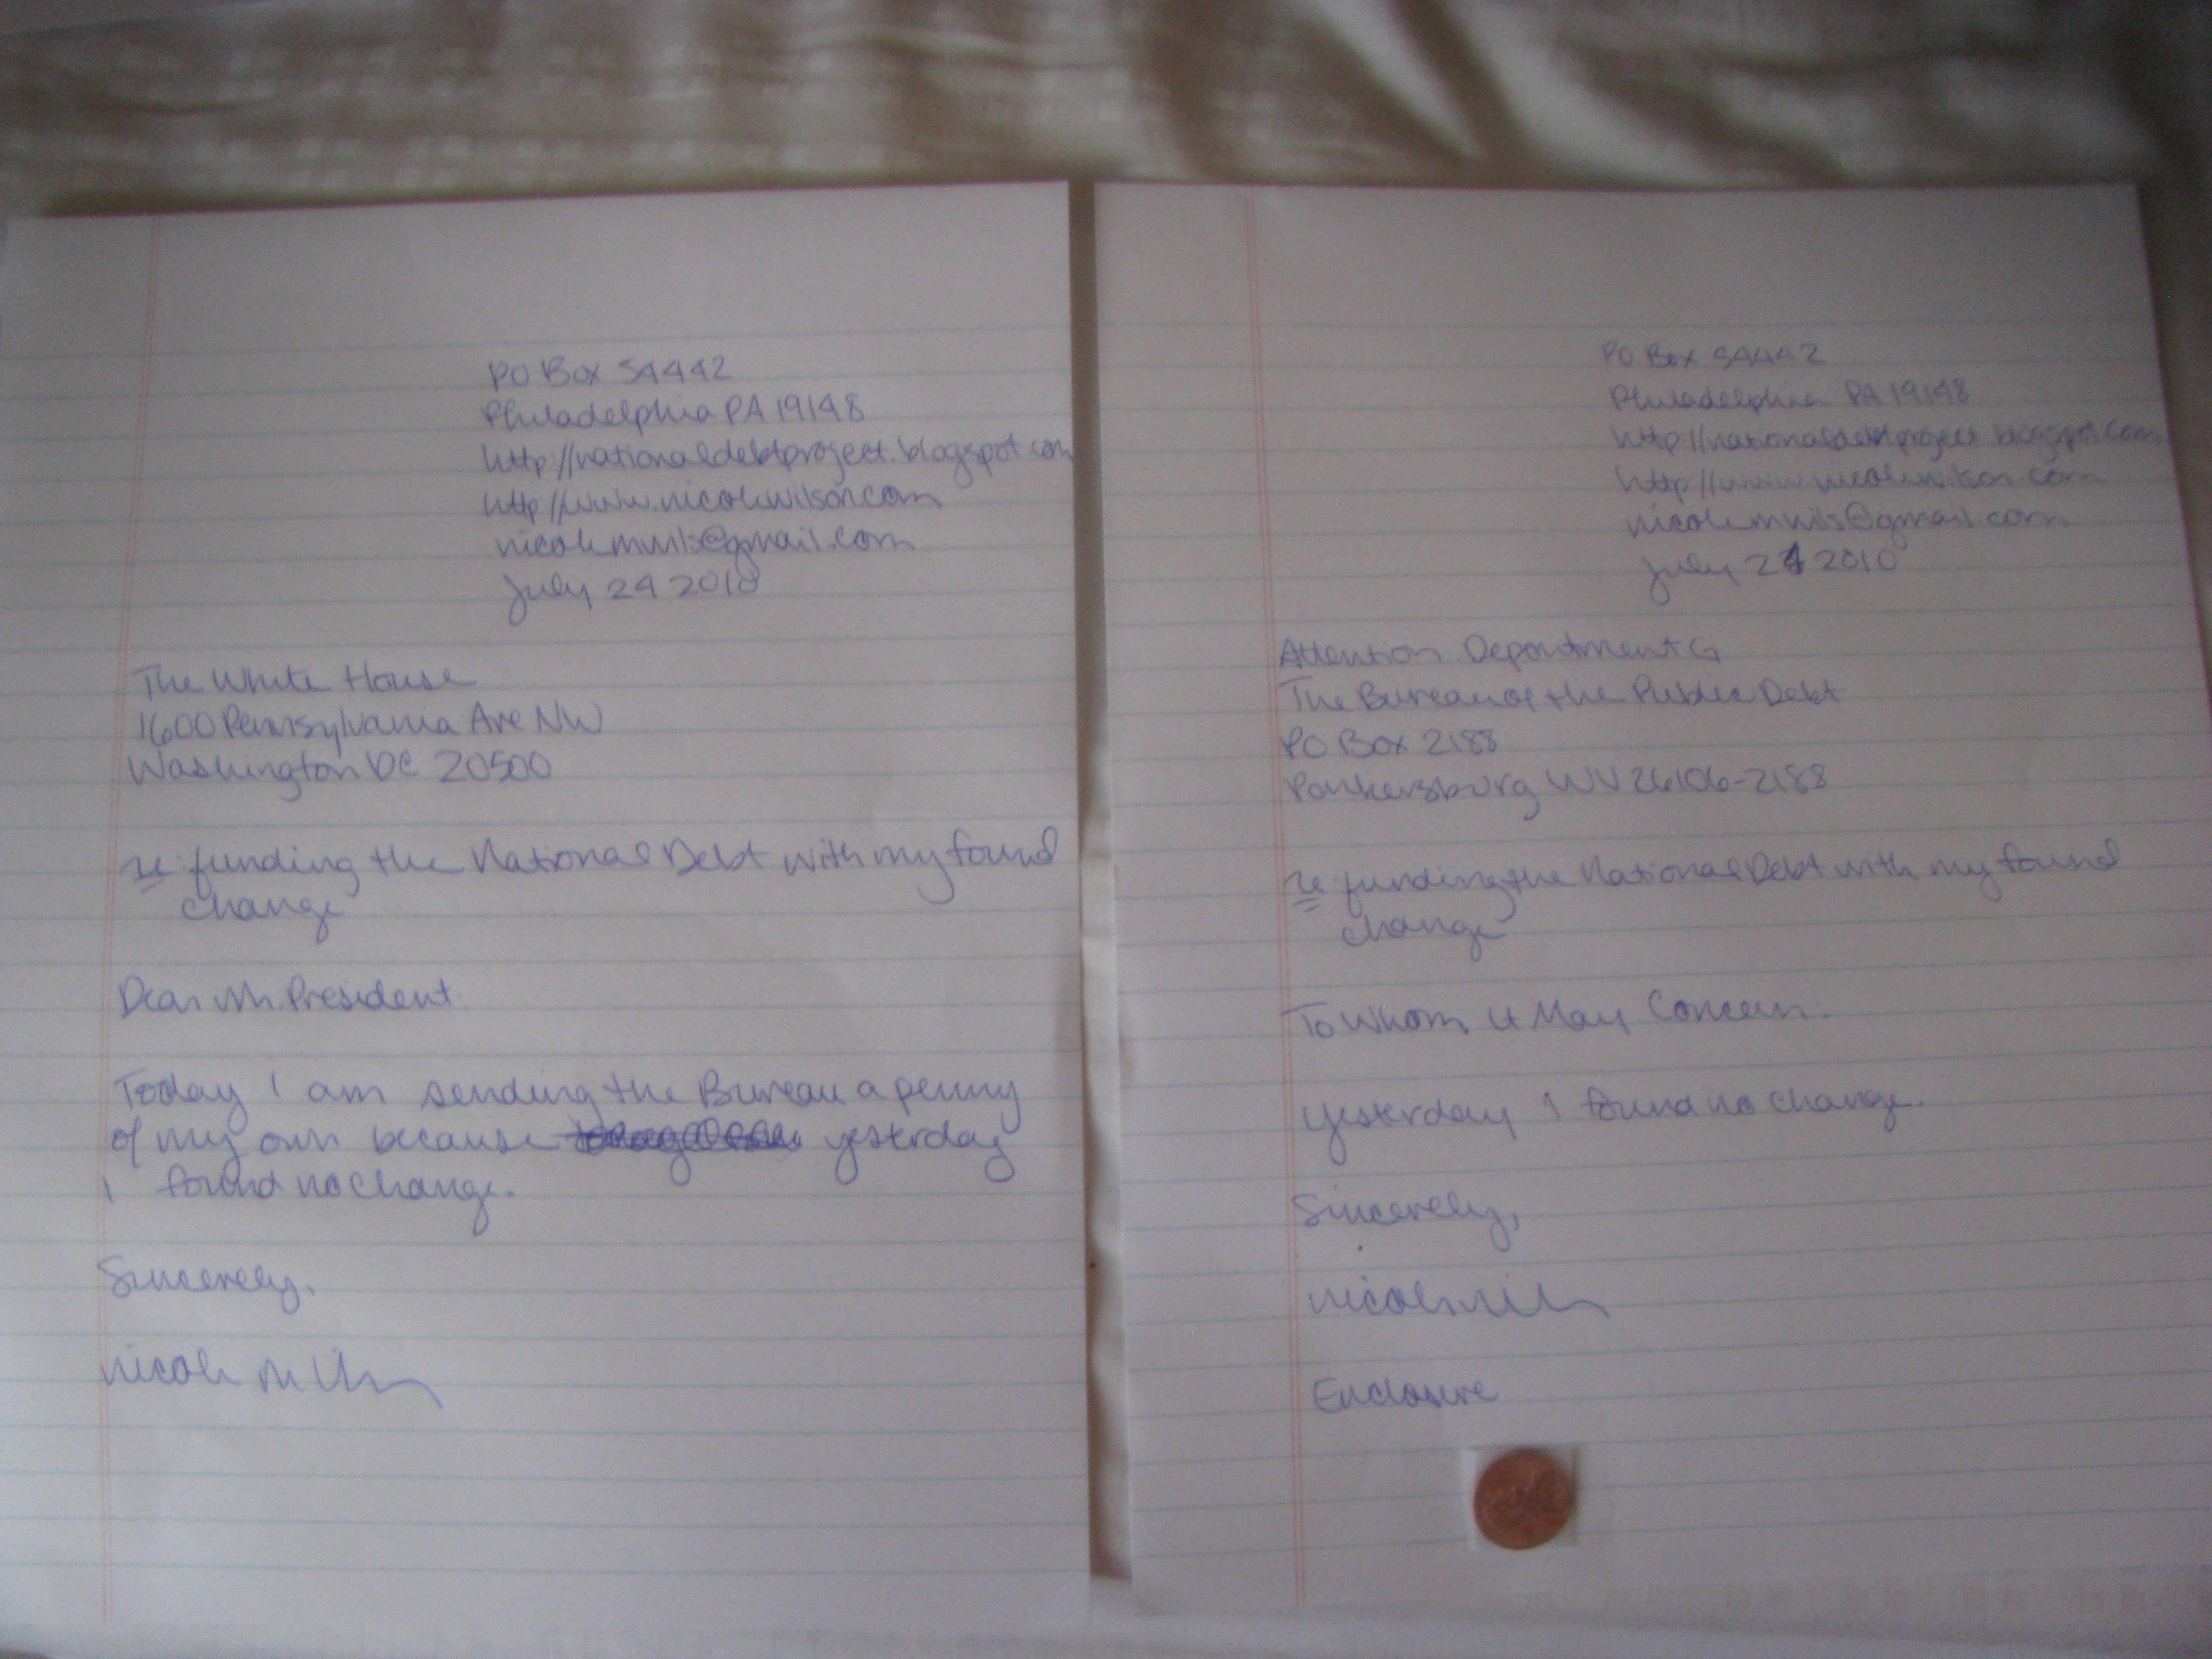 PO Box 54442
Philadelphia PA 19148
http://nationaldebtproject.blogspot.com
http://www.nicolewilson.com
nicolemwils@gmail.com
July 24 2010
The White House
1600 Pennsylvania Ave NW
Washington DC 20500
re: funding the National Debt with my found
change
Dear Mr. President:
Today I am sending the Bureau a penny
of my own because yesterday
I found no change.
Sincerely,
PO Box 54442
Philadelphia PA 19148
http://nationaldebtproject.blogspot.com
http://www.nicolewilson.com
nicolemwils@gmail.com
July 24 2010
Attention Department G
The Bureau of the Public Debt
PO Box 2188
Parkersburg WV 26106-2188
re: funding the National Debt with my found
change
To Whom It May Concern:
Yesterday I found no change.
Sincerely,
Enclosure